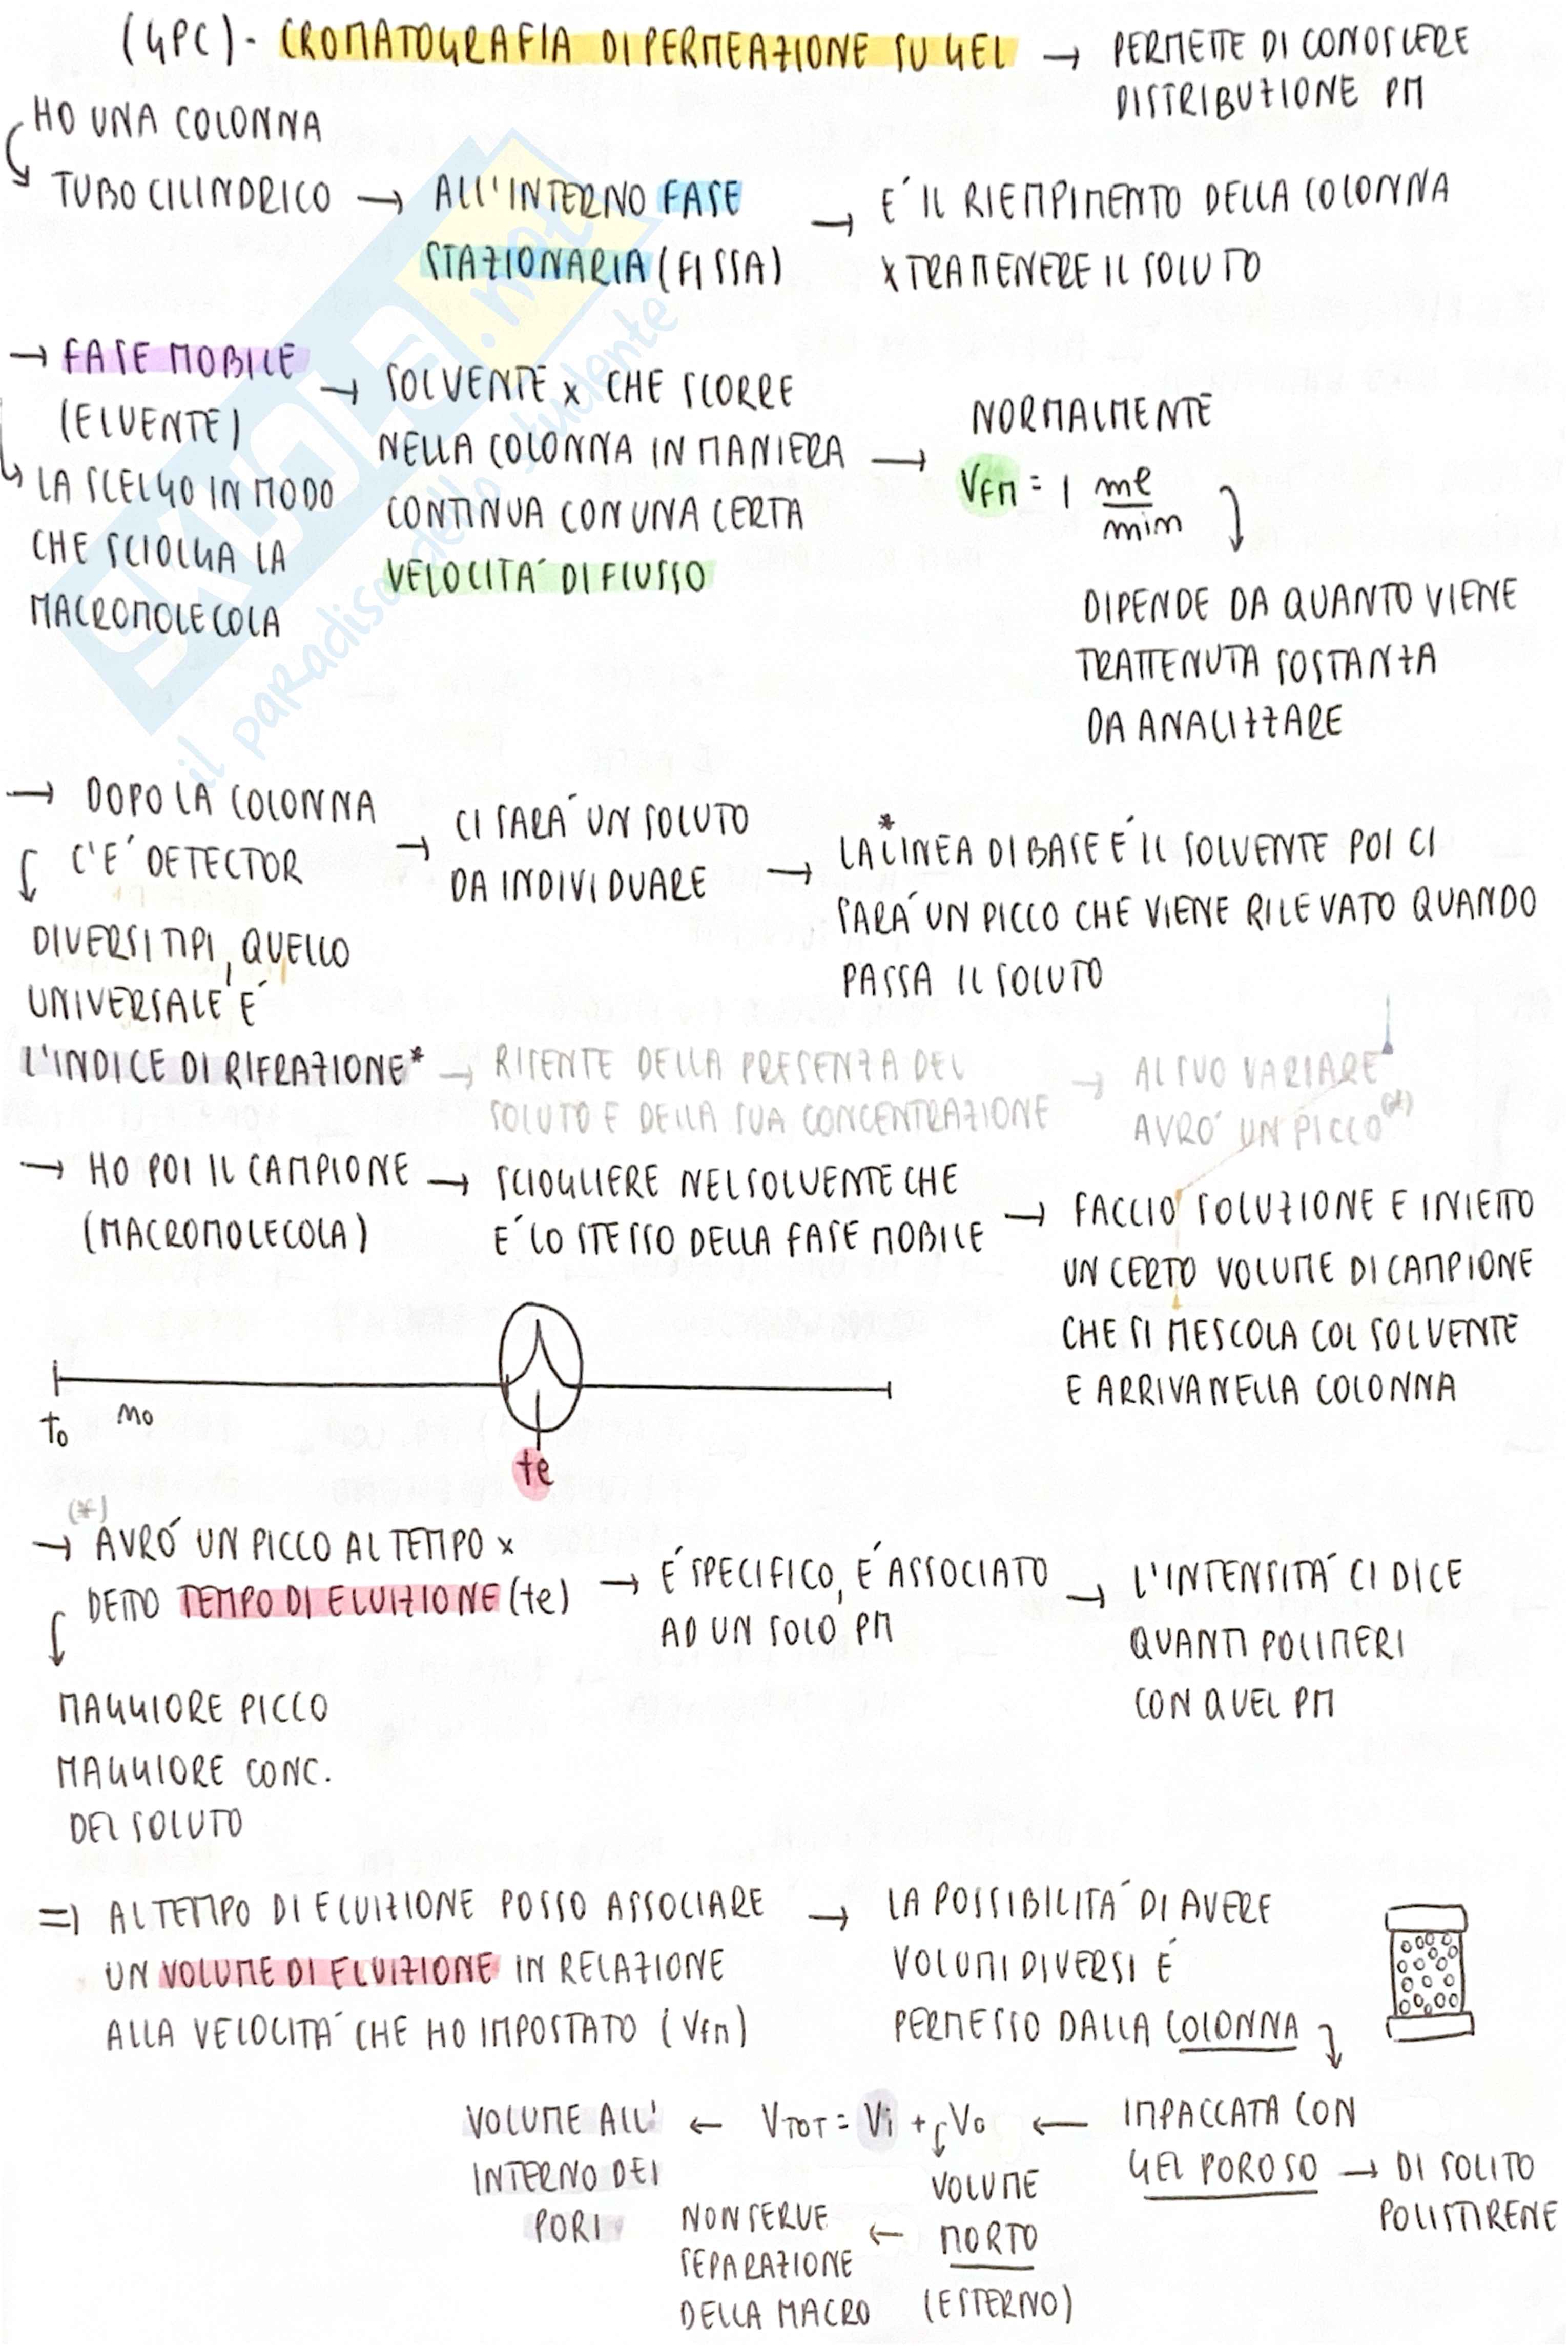 (GPC) - CROMATOGRAFIA DI PERMEAZIONE SU GEL → PERMETTE DI CONOSCERE
DISTRIBUZIONE PM
HO UNA COLONNA
TUBO CILINDRICO → ALL'INTERNO FASE
STAZIONARIA (FISSA)
→ E' IL RIEMPIMENTO DELLA COLONNA
x TRATTENERE IL SOLUTO
→ FASE MOBILE
(ELUENTE)
LA SCELGO IN MODO
CHE SCIOLGA LA
MACROMOLECOLA
→ SOLVENTE x CHE SCORRE
NELLA COLONNA IN MANIERA
CONTINUA CON UNA CERTA
VELOCITA' DI FLUSSO
→ NORMALMENTE
VFM = 1 ml/min
DIPENDE DA QUANTO VIENE
TRATTENUTA SOSTANZA
DA ANALIZZARE
→ DOPO LA COLONNA
C'E' DETECTOR
DIVERSI TIPI, QUELLO
UNIVERSALE E'
L'INDICE DI RIFRAZIONE*
→ CI SARA' UN SOLUTO
DA INDIVIDUARE
→ LA *LINEA DI BASE E' IL SOLVENTE POI CI
SARA' UN PICCO CHE VIENE RILEVATO QUANDO
PASSA IL SOLUTO
→ RISENTE DELLA PRESENZA DEL
SOLUTO E DELLA SUA CONCENTRAZIONE
→ AL SUO VARIARE
AVRO' UN PICCO (*)
→ HO POI IL CAMPIONE
(MACROMOLECOLA)
→ SCIOGLIERE NEL SOLVENTE CHE
E' LO STESSO DELLA FASE MOBILE
→ FACCIO SOLUZIONE E INIETTO
UN CERTO VOLUME DI CAMPIONE
CHE SI MESCOLA COL SOLVENTE
E ARRIVA NELLA COLONNA
t0 m0
te
(*)
→ AVRO' UN PICCO AL TEMPO x
DETTO TEMPO DI ELUIZIONE (te)
MAGGIORE PICCO
MAGGIORE CONC.
DEL SOLUTO
→ E' SPECIFICO, E' ASSOCIATO
AD UN SOLO PM
→ L'INTENSITA' CI DICE
QUANTI POLIMERI
CON QUEL PM
⇒ AL TEMPO DI ELUIZIONE POSSO ASSOCIARE
UN VOLUME DI ELUIZIONE IN RELAZIONE
ALLA VELOCITA' CHE HO IMPOSTATO (VFM)
→ LA POSSIBILITA' DI AVERE
VOLUMI DIVERSI E'
PERMESSO DALLA COLONNA
IMPACCATA CON
GEL POROSO → DI SOLITO
POLISTIRENE
← VTOT = Vi + V0
VOLUME
MORTO
(ESTERNO)
← NON SERVE
SEPARAZIONE
DELLA MACRO
← VOLUME ALL'
INTERNO DEI
PORI
SKUOLA.net
il paradiso dello studente